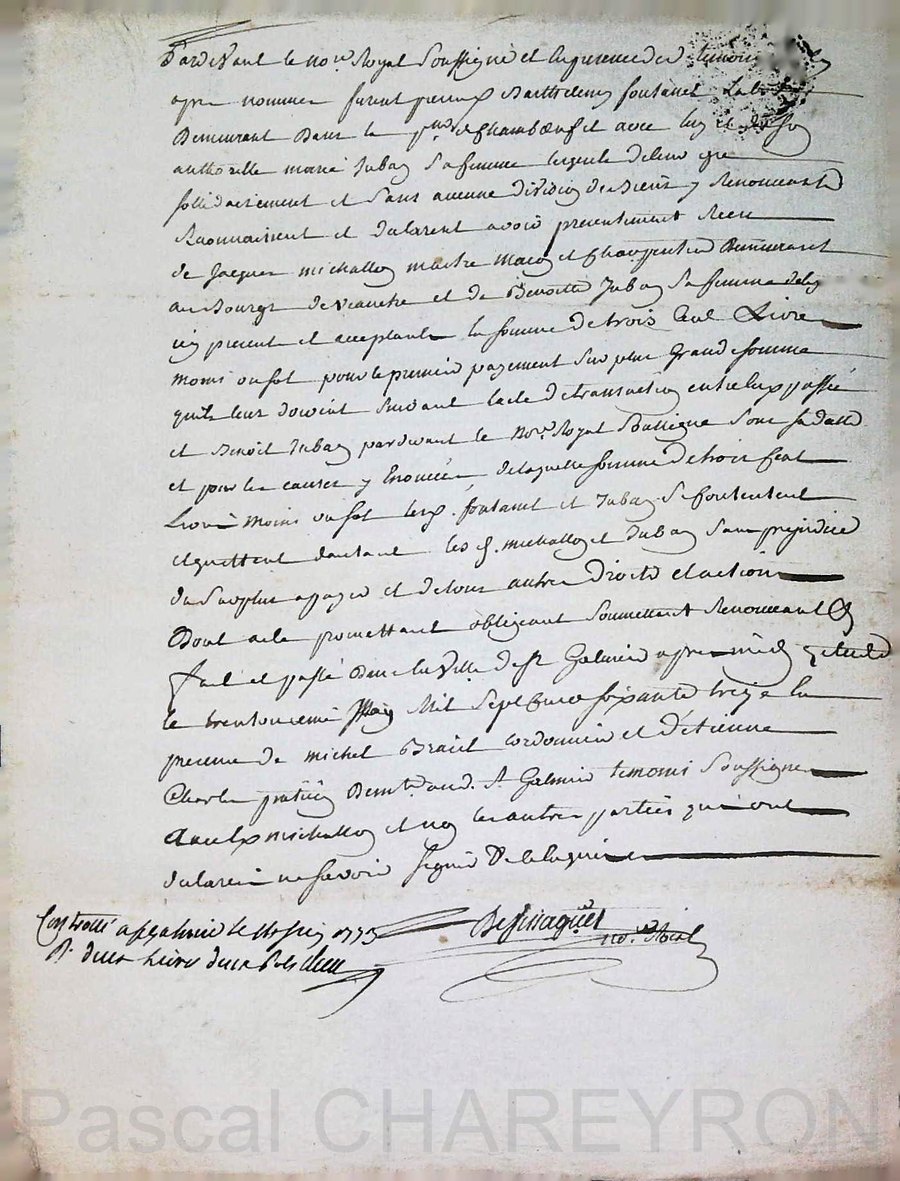 Pardevant le no.re Royal Soussigné et en presence des temoins
apres nommes furent presens Barthelemy fontanel
Demeurant Dans la p.sse de Chambœuf et avec luy et de son
authorité marie Jubay Sa femme lesquels de leur gre
sollidairement et Sans aucune division de Biens y Renonceants
Reconnaissent et declarent avoir presentement Receu
de Jacques michallon maitre maçon et Charpentier Demeurant
au Bourg de veauche et de Benoitte Jubay Sa femme de luy
icy present et acceptants la somme de trois Cent Livres
moins un sol pour le premier payement Sur plus Grande somme
qu'ils leur doivent Suivant l'acte de transaction entre eux passée
et Benoit Jubay pardevant le No.re Royal Soussigne Sous sa datte
et pour les causes y Enoncées, de laquelle somme de trois Cent
Livres moins un sol lesd. fontanel et Jubay Se Contentent
et quittent d'autant les d. michallon et Jubay Sans prejudice
du Surplus a payer et de tous autres Droits et actions
Dont acte promettant obligeant Soumettant Renonceant &
Fait et passé Dans la Ville de St Galmier apres midy
le trente unieme May Mil Sept Cent soixante treize En
presence de michel Brail Cordonnier et d'Etienne
Charles praticien Demt. aud. St Galmier temoins Soussignes
Avec led. michallon et non les autres parties qui ont
declaré ne savoir Signer De ce Enquises
Controllé a St Galmier le Juin 1773
R. deux Livres deux sols
no.re Royal
Pascal CHAREYRON